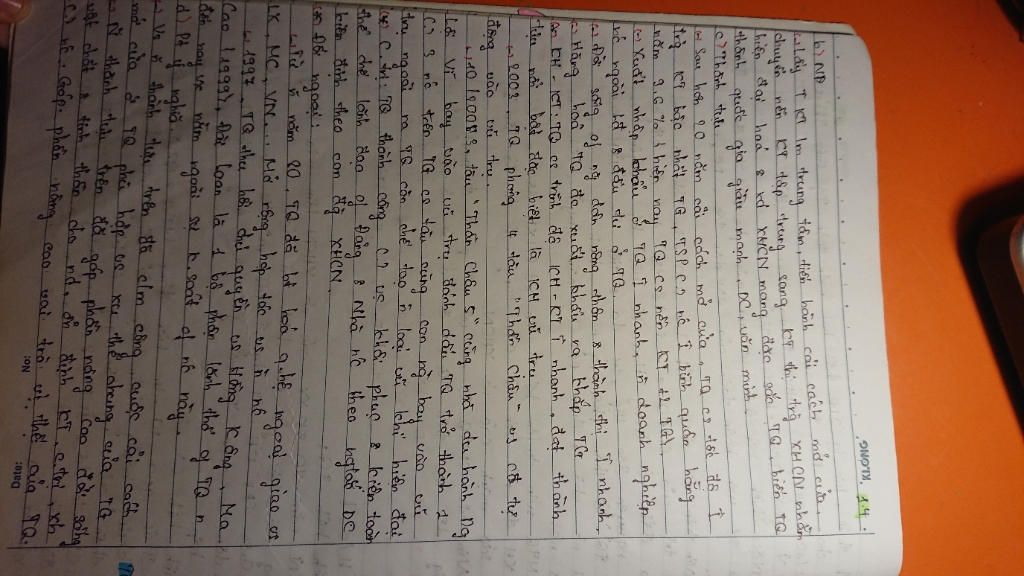 KLONG
14
b) ND
- Lấy PT KT lm trung tâm, tiến hành cải cách mở cửa
chuyển nền KT tập trung sang KT thị trg XHCN nhằm
hiện đại hoá & xd XHCN mang đặc sắc TQ, biến TQ
thành quốc gia giàu mạnh, DC, văn minh.
c) Thành tựu
(*) Sau hơn 20 năm cải cách mở cửa, TQ có tốc độ ↑
trg KT bậc nhất TG, GDP
năm 9,6% (hiện nay TQ có nền KT t2 TG)
(*) Xuất nhập khẩu of TQ ↑ nhanh, n doanh nghiệp
nc ngoài đã đầu tư ở TQ
(*) Đời sống of ng dân nông thôn & thành thị ↑ nhanh.
(*) Hàng hoá TQ đc xuất khẩu ra khắp TG
(*) KH - KT: TQ có trình độ KH-KT ↑ nhanh, đạt thành
tựu nổi bật đặc biệt là KH vũ trụ
2003, TQ phóng 4 tàu "Thần Châu" vs chế độ tự
động vào vũ trụ.
10/2003, tàu "Thần Châu 5" cùng nhà du hành Dg
Lợi Vĩ bay vào vũ trụ đánh dấu TQ trở thành 1
trg 3 nc trên TG có tàu cùng con ng bay vào vũ
trụ ngoài ra TQ còn chế tạo n loại vũ khí hiện đại
(*) C trị: TQ thành công vs khôi phục & kiện toàn
thể chế lãnh đạo of Đảng & Nhà nc theo nguyên tắc DC
kiên định theo con đg XHCN
(*) Đối ngoại:
Từ n năm 80, TQ đã bt hoá q.hệ ngoại giao vs
LX, MC, VN... Mở rộng hợp tác vs n nc
1997, TQ thu hồi chủ quyền vs Hồng Kông, Ma
Cao (1999), Đài Loan là 1 bộ phận lãnh thổ of TQ n
đến nay vẫn nằm ngoài sự k soát of nc này.
d) Ý nghĩa
- n thành tựu trên đã c/m công cuộc cải cách
mở cửa of TQ phù hợp vs xu thế chung của TG
- n thành tựu trên đã góp phần nâng cao đời sống
vật chất & tinh thần cho nd, ổn định KT, ctrị, xh
nc, Góp phần nâng cao vai trò vị thế của TQ
No:
Date: